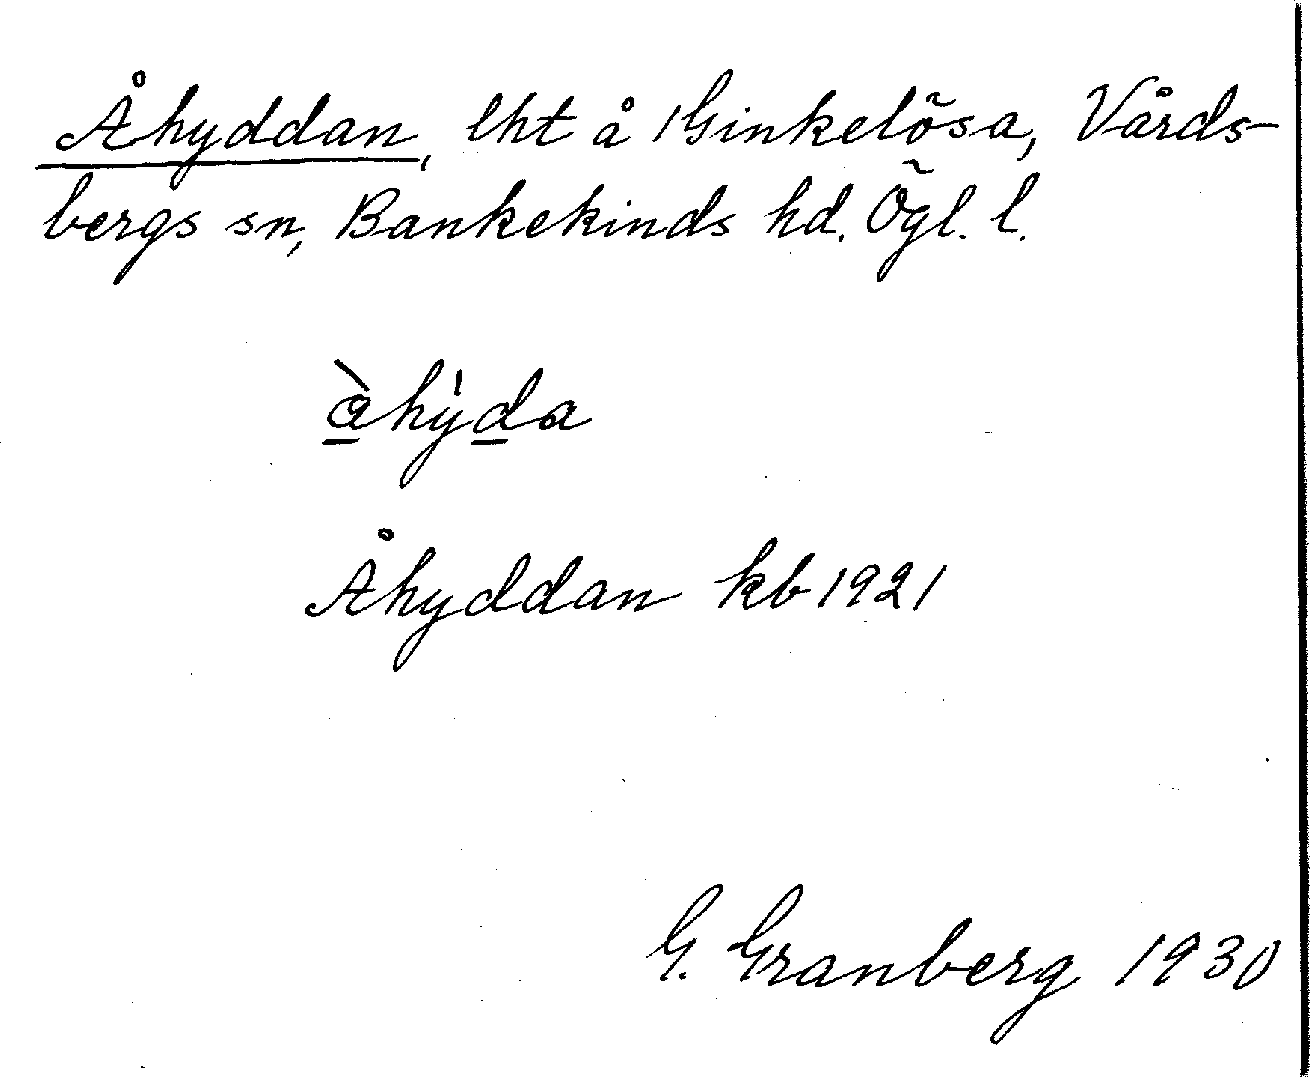 Åhyddan, lht å Ginkelösa, Vårds-
bergs sn, Bankekinds hd. Ögl. l.
åhyda
Åhyddan kb 1921
G. Granberg 1930